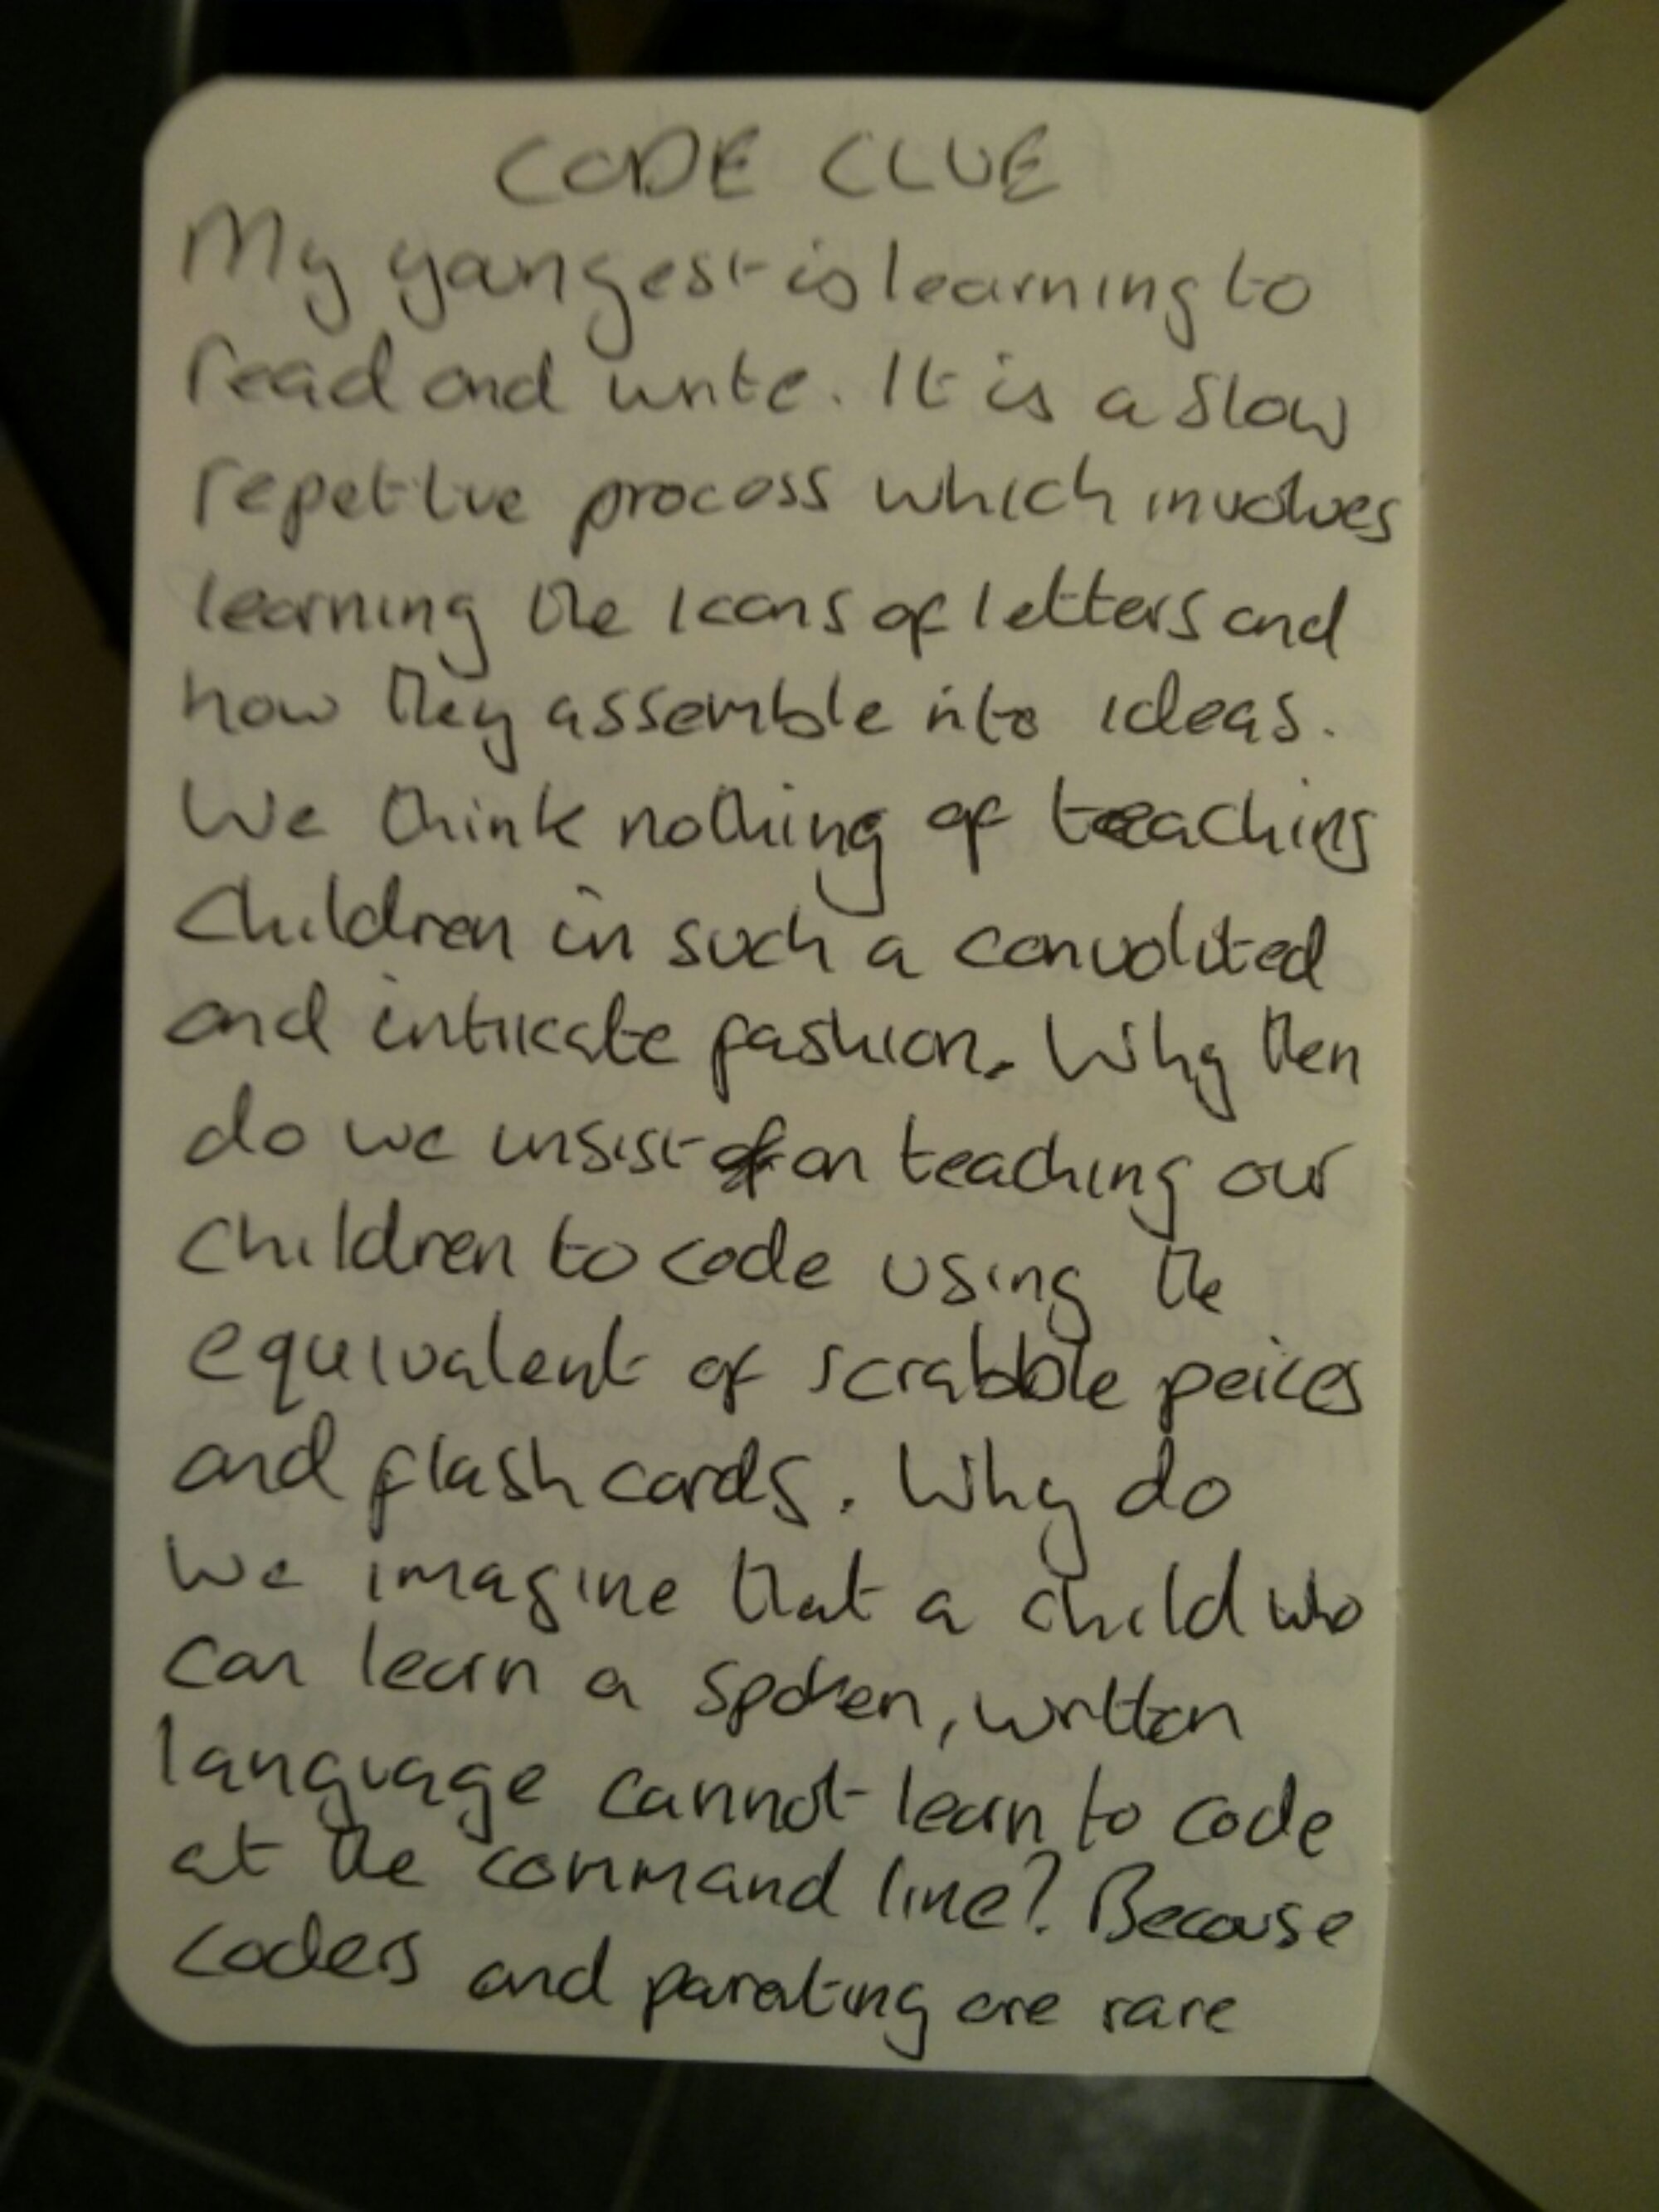 CODE CLUE
My youngest is learning to
read and write. It is a slow
repetitve process which involves
learning the icons of letters and
how they assemble into ideas.
We think nothing of teaching
children in such a convoluted
and intricate fashion. Why then
do we insist on teaching our
children to code using the
equivalent of scrabble peices
and flash cards. Why do
we imagine that a child who
can learn a spoken, written
language cannot learn to code
at the command line? Because
coders and parating are rare